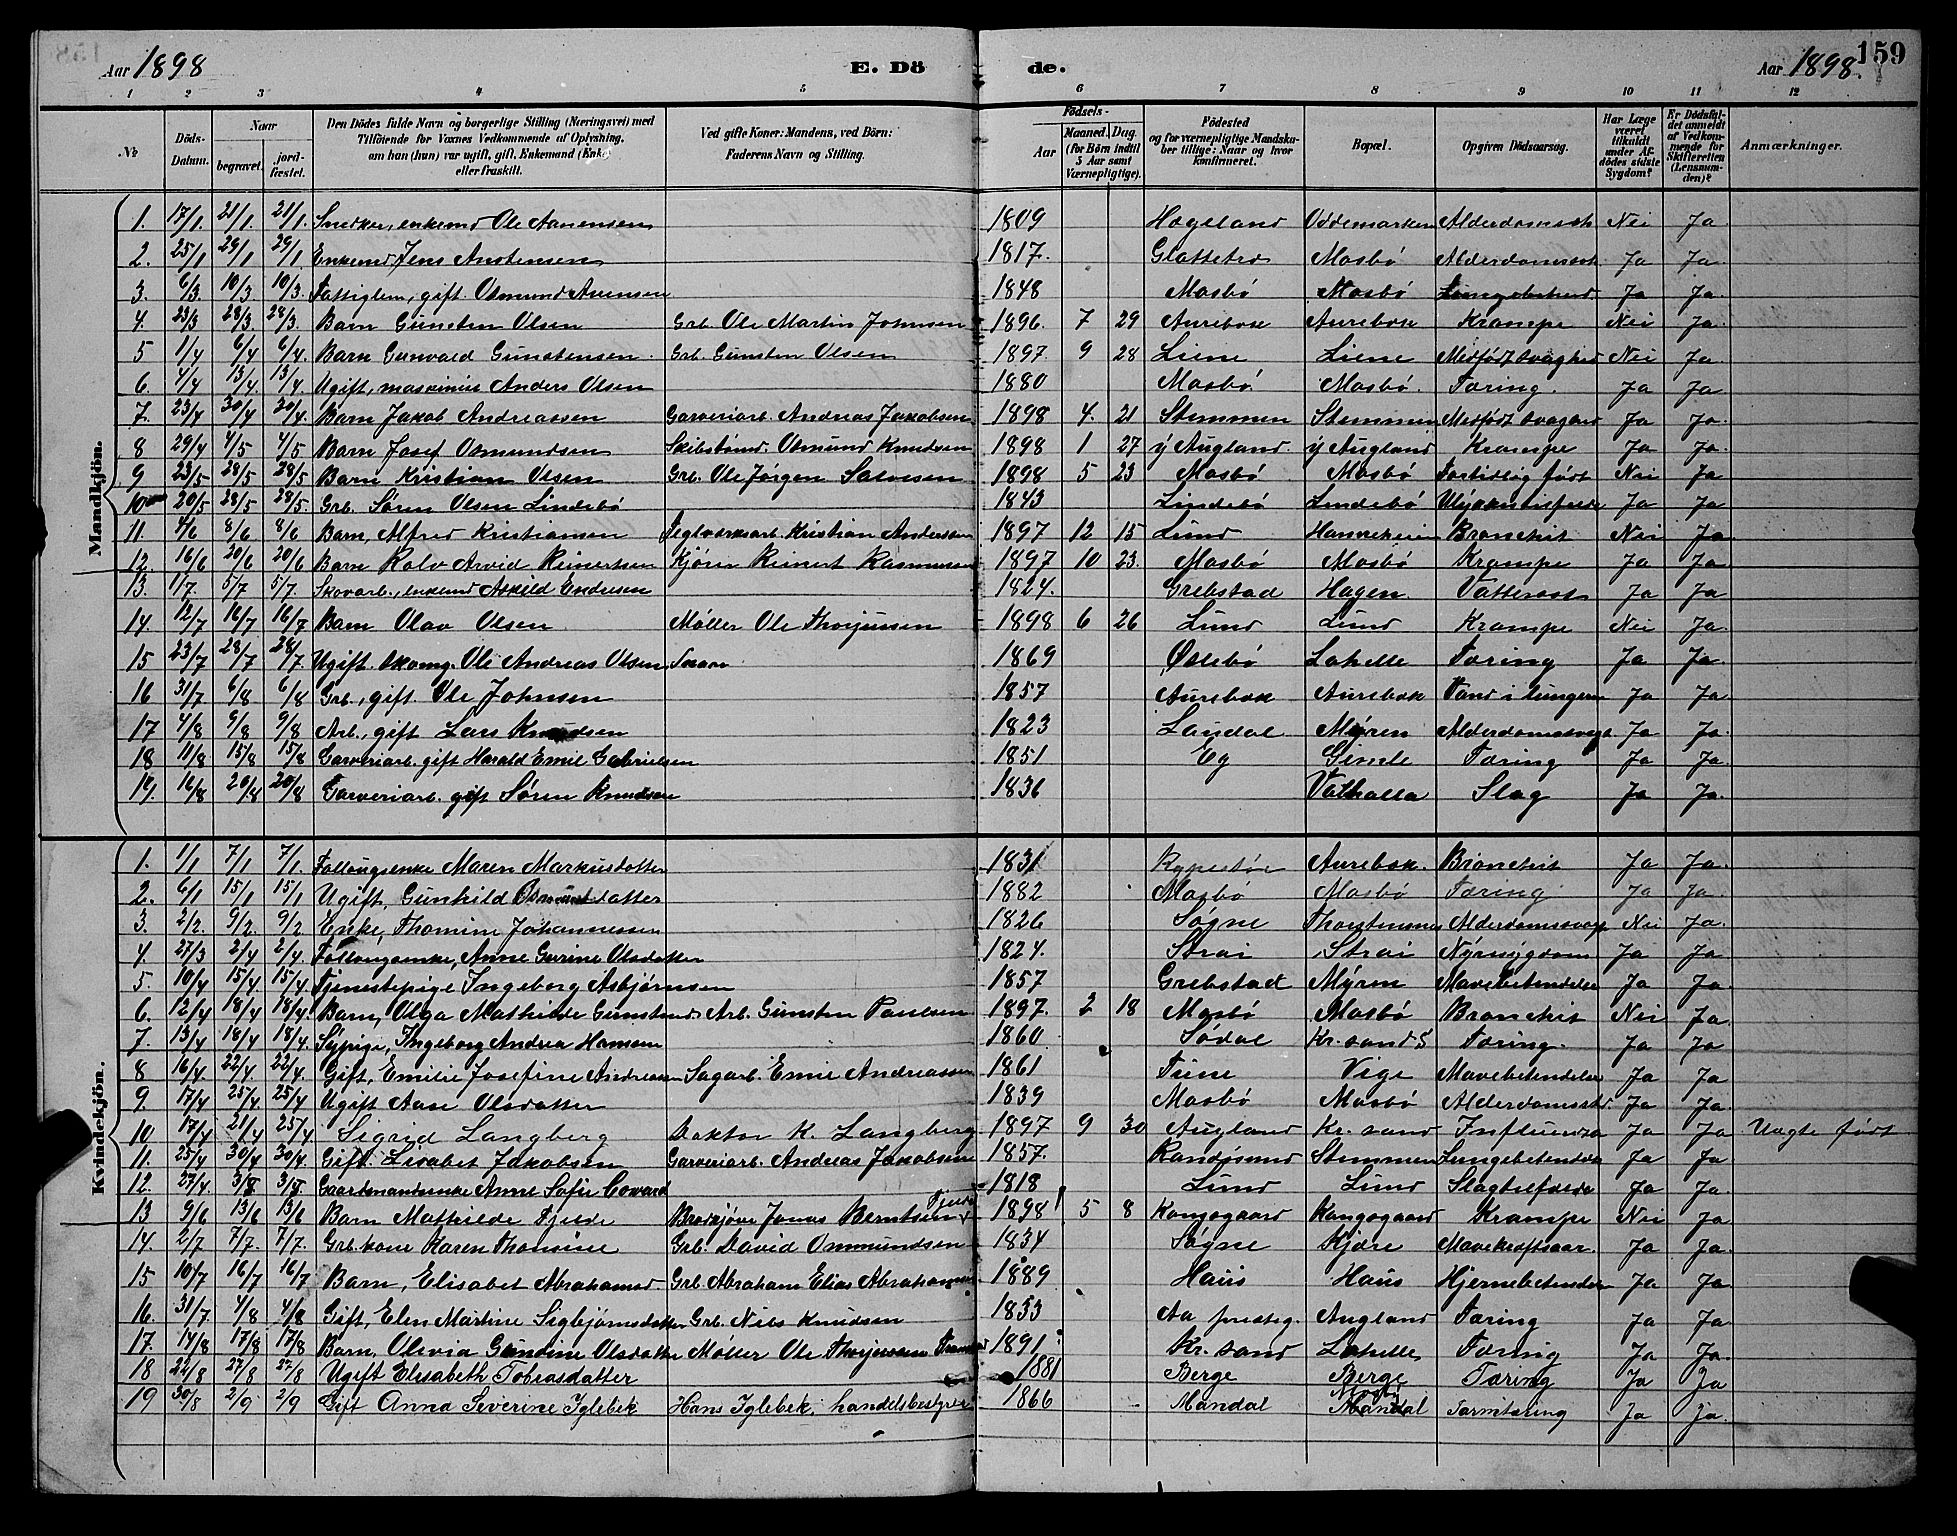 Aar 1898 E. Dö de. Aar 1898. 159
1 2 3 4 5 6 7 8 9 10 11 12
№ Döds-Datum. Naar begravet. jord-fæstet. Den Dödes fulde Navn og borgerlige Stilling (Næringsvei) med Tilföiende for Voxnes Vedkommende af Oplysning, om han (hun) var ugift, gift, Enkemand (Enke) eller fraskilt. Ved gifte Koner: Mandens, ved Börn: Faderens Navn og Stilling. Födsels- Aar Maaned. Dag. (for Börn indtil 5 Aar samt Værnepligtige). Födested og for værnepligtige Mandskaber tillige: Naar og hvor konfirmeret. Bopæl. Opgiven Dödsaarsag. Har Læge været tilkaldt under Afdödes sidste Sygdom? Er Dödsfaldet anmeldt af Vedkommende for Skifteretten (Lensmanden)? Anmærkninger.
Mandkjön.
1. 17/1 21/1 21/1. Snedker, enkemd Ole Aanensen 1809 Hægeland Oddemarken Alderdomssvk Nei Ja
2. 25/1 29/1 29/1. Enkemd Jens Anstensen 1817. Glattetre Mosbö Alderdomssvk. Ja Ja.
3. 6/3. 10/3. 10/3. Fattiglem, gift Osmund Avensen 1848 Mosbö Mosbö Lungebetænd. Ja Ja.
4. 23/3 28/3. 28/3. Barn Gunsten Olsen Grb. Ole Martin Johnsen 1896. 7 29 Aurebæk Aurebæk Krampe Nei Ja.
5 1/4 6/4 6/4. Barn Gunvald Gunstensen. Grb. Gunsten Olsen 1897 9 28 Liene Liene Medfödt svaghed Nei Ja.
6. 4/4 13/4. 13/4. Ugift, maskinist Anders Olsen 1880 Mosbö Mosbö. Tæring. Ja Ja
7. 23/4 30/4 30/4. Barn Jakob Andreassen Garveriarb. Andreas Jakobsen 1898 4. 21 Stemmen Stemmen Medfödt svaghed Ja Ja.
8 29/4 4/5 4/5 Barn Josef Osmundsen Skibstömd. Osmund Knudsen 1898 1 27 y Augland. y Augland Krampe Ja Ja.
9 23/5 28/5 28/5 Barn Kristian Olsen Grb. Ole Jörgen Salvesen 1898 5 23 Mosbö Mosbö Fortidlig födt Nei Ja
10 20/5 28/5 28/5. Grb. Søren Olsen Lindebö 1843 Lindebö Lindebö Ulykkestilfælde Ja Ja
11. 4/6 8/6 8/6 Barn, Alfred Kristiansen Teglværksarb. Kristian Andersen 1897 12 15 Lund Hannekleiven Bronchit Nei Ja
12. 16/6 20/6 20/6 Barn Rolv Arvid Reinertsen Kjörer Reinert Rasmussen 1897 10 23. Mosbö Mosbö Krampe Ja Ja
13. 1/7 5/7 5/7. Skovarb., enkemd Askild Endresen 1824. Grebstad Hagen. Vattersot Ja Ja
14. 12/7 16/7 16/7 Barn Olav Olsen Møller Ole Thorjussen 1898 6 26 Lund Lund Krampe Nei Ja
15 23/7 28/7 28/7 Ugift skomg. Ole Andreas Olsen 1869 Øslebö Lahelle Tæring Ja Ja
16 31/7 6/8 6/8 Grb., gift Ole Johnsen 1857 Aurebæk Aurebæk Vand i lungerne Ja Ja
17 4/8 9/8 9/8 Arb., gift Lars Knudsen 1823 Laudal Myren Alderdomssvag Ja Ja
18 11/8 15/8 15/8 Garveriarb. gift Harald Emil Gabrielsen 1851 Eg Gimle Tæring Ja Ja
19. 16/8 20/8 20/8 Garveriarb. gift Søren Knudsen 1836 Valhalla Slag Ja Ja
Kvindekjön.
1. 1/1 7/1 7/1. Follougsenke Maren Markusdatter 1831 Aurebæk. Bronchit Ja Ja.
2. 6/1 15/1 15/1 Ugift, Gunhild Osmundsdatter 1882 Mosbö Mosbö Tæring Ja Ja.
3. 2/2. 9/2. 9/2. Enke, Thomine Johannessen 1826 Søgne Alderdomssvag Nei Ja
4. 27/3 2/4 2/4. Follougsenke, Anne Gurine Olsdatter 1824. Strai Strai Nyresygdom Ja Ja
5. 10/4 15/4 15/4. Tjenestepige Ingeborg Asbjørnsen 1857 Grebstad Myren Mavebetændelse Ja Ja.
6. 12/4 18/4 18/4. Barn, Olga Mathilde Gunstensd. Arb. Gunsten Paulsen 1897. 2 18 Mosbö Mosbö Bronchit Nei Ja.
7. 13/4 18/4 18/4. Sypige, Ingeborg Andrea Hansen 1860 Sødal Kr.sand S Tæring. Ja Ja
8 16/4. 22/4 22/4. Gift, Emilie Josefine Andreasen Sagarb. Emil Andreassen 1861 Tune Vige Mavebetændelse Ja Ja
9. 17/4 25/4. 25/4 Ugift Aase Olsdatter 1839 Mosbö Mosbö Alderdomssvd. Ja Ja
10 17/4 21/4 25/4 Sigryd Langberg Doktor K. Langberg 1897 9 30 Augland Kr. sand Influenza Ja Ja Uægte født
11. 25/4 30/4 30/4. Gift. Lisabet Jakobsen Garveriarb. Andreas Jakobsen 1857. Randøsund Stemmen Lungebetændelse Ja Ja
12. 27/4. 3/5 3/5. Gaardmandsenke Anne Sofie Coward 1818 Lund Lund Slagtilfælde Ja Ja.
13 9/6 13/6 13/6 Barn Mathilde Fjelde Brodsjöve Jonas Berntsen Fjelde 1898 5 8 Kongsgaard Kongsgaard Krampe Nei Ja
14. 2/7 7/7. 7/7. Grb. kone Karen Thomine Grb. David Ommundsen 1834 Søgne Kjære Mavekræftsaar. Ja Ja.
15 10/7 16/7 16/7 Barn, Elisabet Abrahamsd. Grb. Abraham Elias Abrahamsen 1889 Haus Haus Hjernebetændelse Ja Ja
16. 31/7. 4/8 4/8 Gift, Elen Martine Sigbjørnsdatter Grb. Nils Knudsen 1833 Aa prestg. Augland Tæring Ja Ja.
17. 14/8 17/8 17/8 Barn, Olivia Gundine Olsdatter Møller Ole Thorjussen 1891 Kr. sand Lahelle Tæring Ja Ja.
18 22/8 27/8 27/8 Ugift Elisabeth Tobiasdatter 1881 Berge Berge Tæring Ja Ja
19 30/8 2/9 2/9 Gift Anna Severine Iglebæk Hans Iglebæk, handelsbestyrer 1866 Mandal Mosby Mandal Tarmtæring Ja Ja.